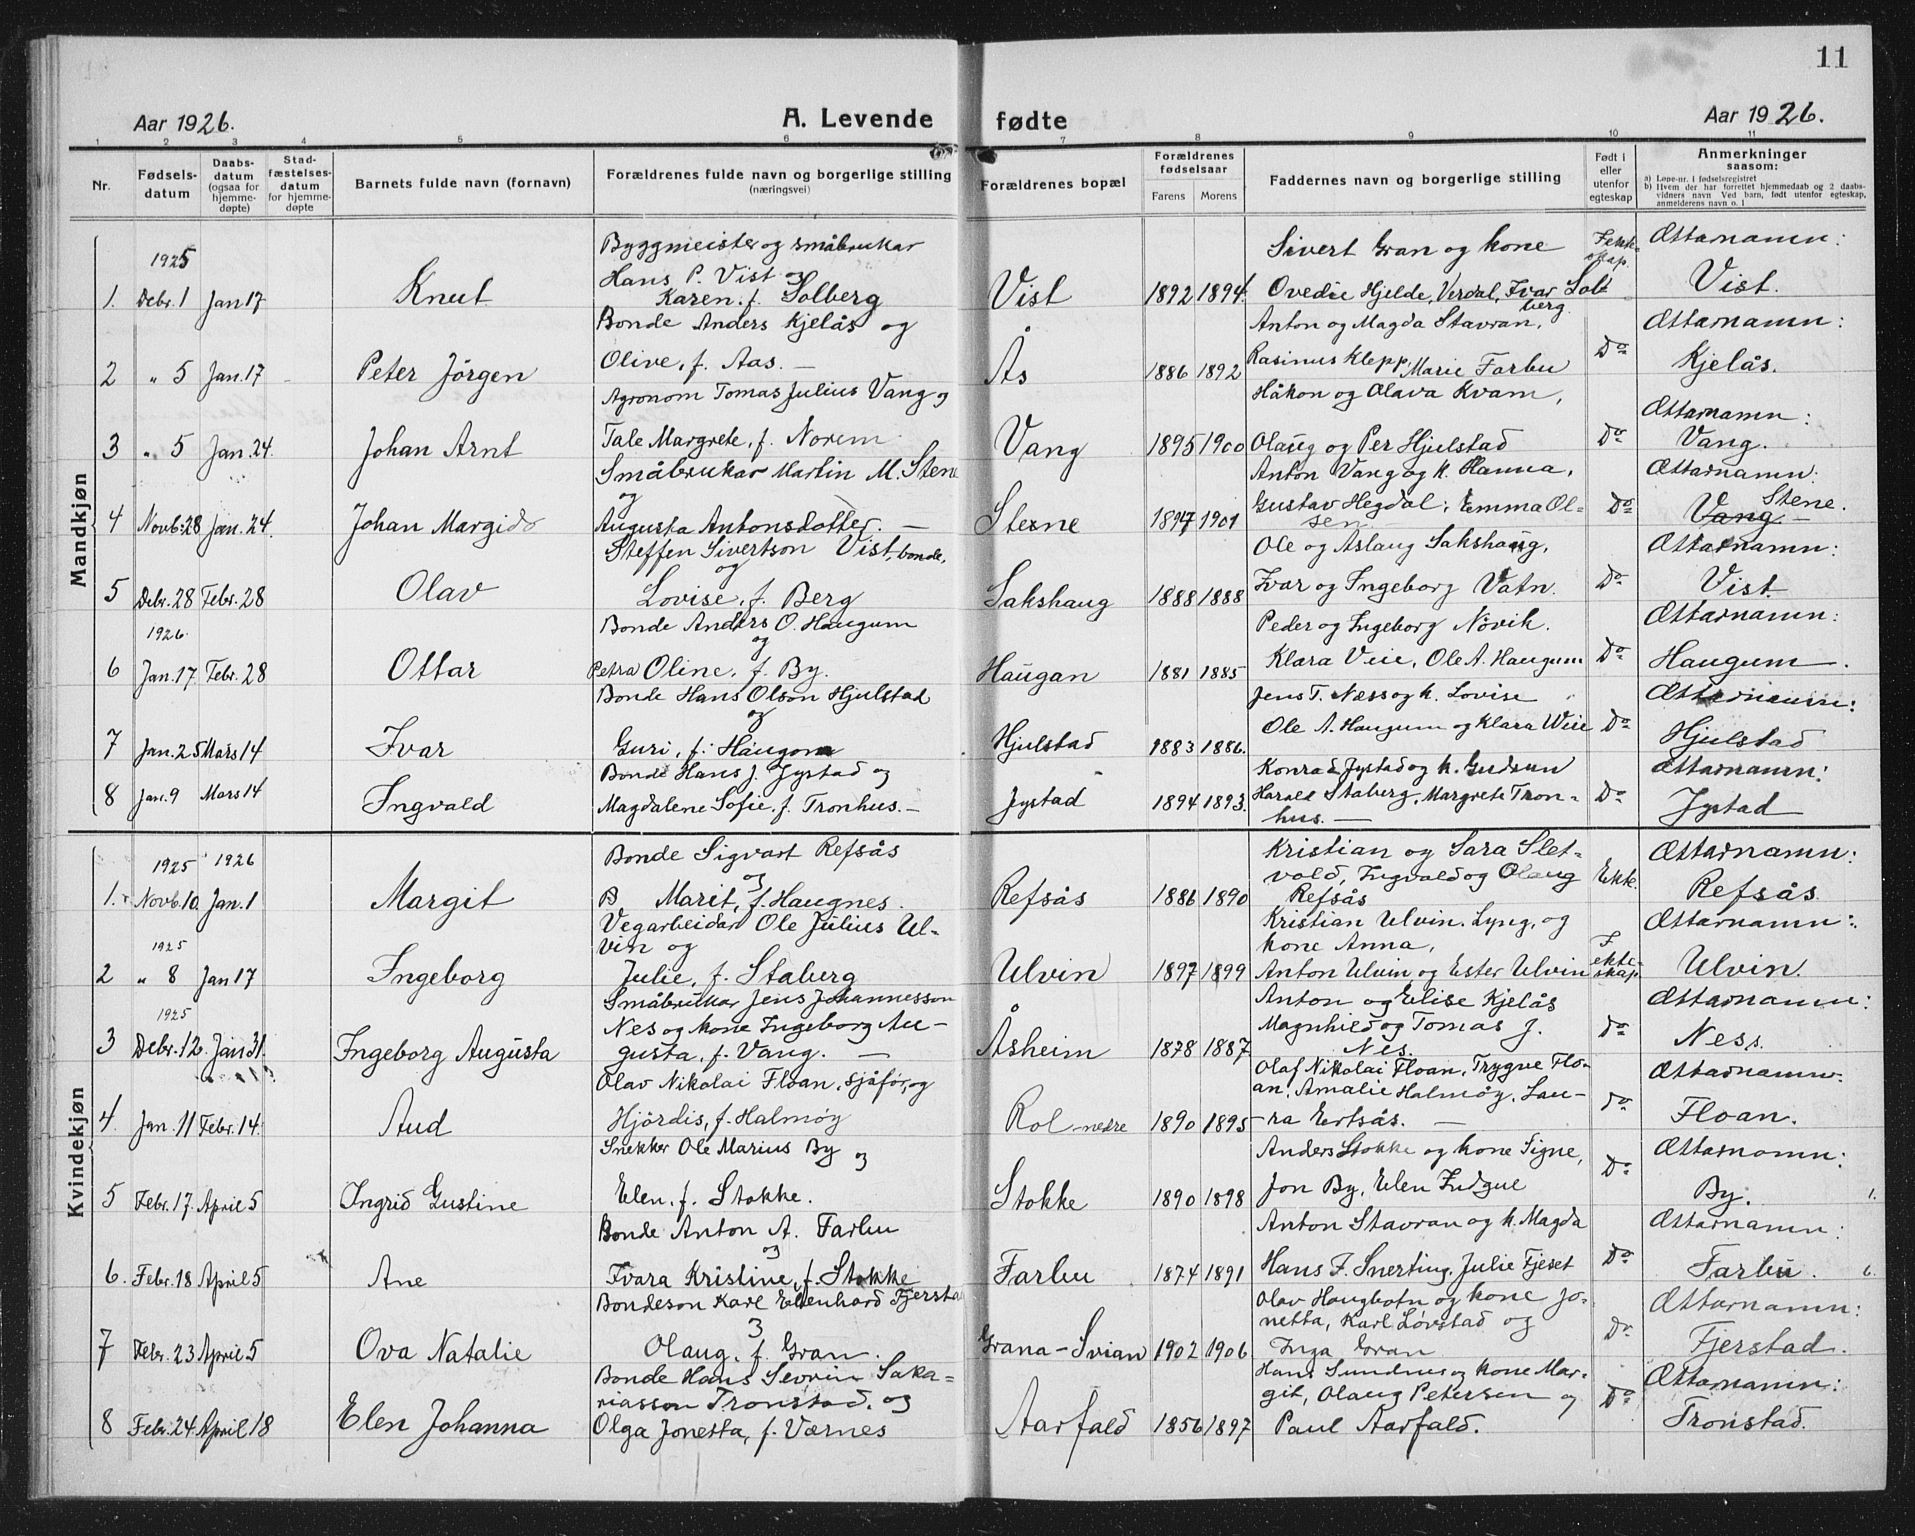 11
Aar 1926.
A. Levende fødte
Aar 1926.
1 2 3 4 5 6 7 8 9 10 11
Nr.
Fødsels-
datum
Daabs-
datum
(ogsaa for
hjemme-
døpte)
Stad-
fæstelses-
datum
for hjemme-
døpte
Barnets fulde navn (fornavn)
Forældrenes fulde navn og borgerlige stilling
(næringsvei)
Forældrenes bopæl
Forældrenes
fødselsaar
Farens Morens
Faddernes navn og borgerlige stilling
Født i
eller
utenfor
egteskap
Anmerkninger
saasom:
a) Løpe-nr. i fødselsregistret
b) Hvem der har forrettet hjemmedaab og 2 daabs-
vidners navn Ved barn, født utenfor egteskap,
anmelderens navn o. l
Mandkjøn
Byggmeister og småbrukar
Sivert Gran og kone
Ættarnamn:
1925
Hans P. Vist og
1. Debr. 1 Jan 17 Knut Karen f. Solberg Vist 1892 1894 Ovedie Hjelde, Verdal, Ivar Sol-
berg.
Vist.
Bonde Anders Kjelås og
Anton og Magda Stavran,
Ættarnamn:
2 " 5 Jan. 17 Peter Jörgen Olive, f. Aas. — Ås 1886 1892 Rasinus Klepp, Marie Farbu Do Kjelås.
Agronom Tomas Julius Vang og
Håkon og Olava Kvam,
Ættarnamn:
3 " 5 Jan. 24 Johan Arnt Tale Margrete, f. Norem Vang 1895 1900 Olaug og Per Hjulstad Do Vang.
Småbrukar Martin M. Stene
og
Anton Vang og k. Hanna,
Ættarnamn:
4 Novb. 28 Jan. 24. Johan Margido Augusta Antonsdotter. — Stene 1897 1901 Gustav Hegdal, Emma Ol-
sen
Do Vang Stene.
Steffen Sivertson Vist, bonde,
og
Ole og Aslaug Sakshaug,
Ættarnamn:
5 Debr. 28 Febr. 28 Olav Lovise, f. Berg Sakshaug 1888 1888 Ivar og Ingeborg Vatn. Do Vist.
1926.
Bonde Anders O. Haugum
og
Peder og Ingeborg Növik.
Ættarnamn:
6 Jan. 17 Febr. 28 Ottar Petra Oline, f. By. Haugan 1881 1885 Klara Veie, Ole A. Haugum Do Haugum.
Bonde Hans Olson Hjulstad
og
Jens T. Næss og k. Lovise
Ættarnamn:
7 Jan. 25 Mars 14 Ivar Guri, f. Haugom Hjulstad 1883 1886. Ole A. Haugum og Klara Weie Do Hjulstad
Bonde Hans J. Jystad og
Konrad Jystad og k. Gudrun
Ættarnamn:
8 Jan. 9 Mars 14 Ingvald Magdalene Sofie, f. Tronhus. — Jystad 1894 1893. Harald Staberg, Margrete Tron-
hus. —
Do Jystad
Kvindekjøn
1925 1926
Bonde Sigvart Refsås
og
Kristian og Sara Slet-
vold, Ingvald og Olaug
Ættarnamn:
1. Novb. 10 Jan. 1 Margit B Marit, f. Haugnes. Refsås 1886 1890 Refsås Ekte. Refsås
Vegarbeidar Ole Julius Ul-
vin og
Kristian Ulvin. Lyng, og
kone Anna,
Ættarnamn:
1925
2 " 8 Jan 17 Ingeborg Julie, f. Staberg Ulvin 1897 1899 Anton Ulvin og Ester Ulvin I
ekte-
skap.
Ulvin.
Småbrukar Jens Johannesson
Anton og Elise Kjelås
Ættarnamn:
1925
3 Debr. 12. Jan 31. Ingeborg Augusta Nes og kone Ingeborg Au-
gusta, f. Vang. — Åsheim 1878 1887 Magnhild og Tomas J.
Nes.
Do Ness.
Olav Nikolai Floan, sjåför, og
Olaf Nikolai Floan, Trygve Flo-
an, Amalie Halmöy, Lau-
Ættarnamn.
4. Jan. 11 Febr. 14. Aud Hjördis, f. Halmöy Rol nedre 1890 1895 ra Ertsås. — Do Floan.
Snekker Ole Marius By og
Anders Stokke og kone Signe,
Ættarnamn:
5 Febr. 17. April 5 Ingrid Gustine Elen, f. Stokke. Stokke 1890 1898 Jon By, Elen Indgue Do By. 1.
Bonde Anton A. Farbu
og
Anton Stavran og k. Magda
Ættarnamn:
6. Febr. 18 April 5 Ane Ivara Kristine, f. Stokke Farbu 1874 1891 Hans F. Snerting, Julie Fjeset Do Farbu. 6.
Bondeson Karl Edenhard Fjerstad
og
Olav Haugbotn og kone Jo-
netta, Karl Lövstad og
Ættarnamn:
7 Febr. 23 April 5 Ova Natalie Olaug, f. Gran. Grana-Svian 1902 1906 Inga Gran Do Fjerstad.
Bonde Hans Sevrin Saka-
riasson Tronstad, og
Hans Sundnes og kone Mar-
git, Olaug Petersen og
Ættarnamn:
8 Febr. 24 April 18 Elen Johanna Olga Jonetta, f. Værnes Aarfald 1856 1897 Paul Aarfald. Do Tronstad.